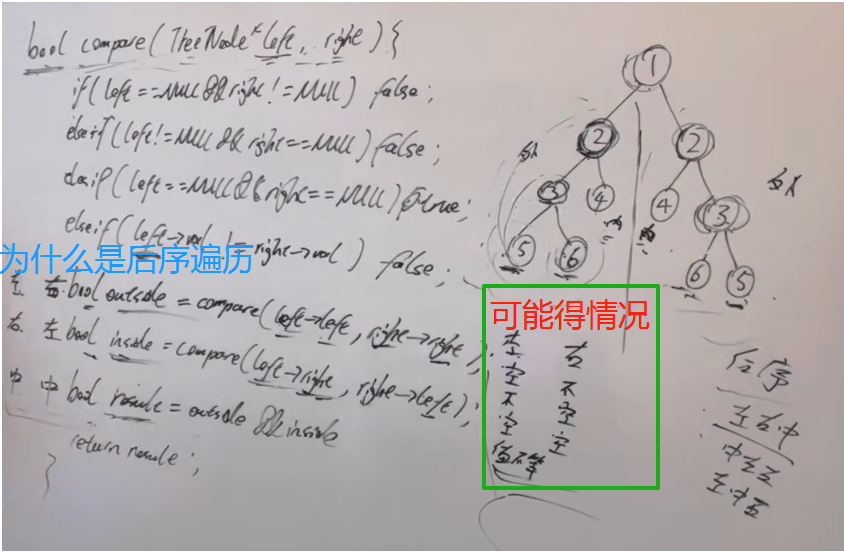 bool compare(TreeNode* left, right){
if(left==NULL&&right!=NULL) false;
else if(left!=NULL&&right==NULL) false;
else if(left==NULL&&right==NULL) true;
else if(left->val != right->val) false;
为什么是后序遍历
左 右 bool outside = compare(left->left, right->right);
右 左 bool inside = compare(left->right, right->left);
中 中 bool result = outside && inside
return result;
}
1
2 2
3 4 4 3
5 6 6 5
外
内 内
外
可能得情况
左 右
空 不
不 空
空 空
值不等
后序
左右中
中左右
左中右